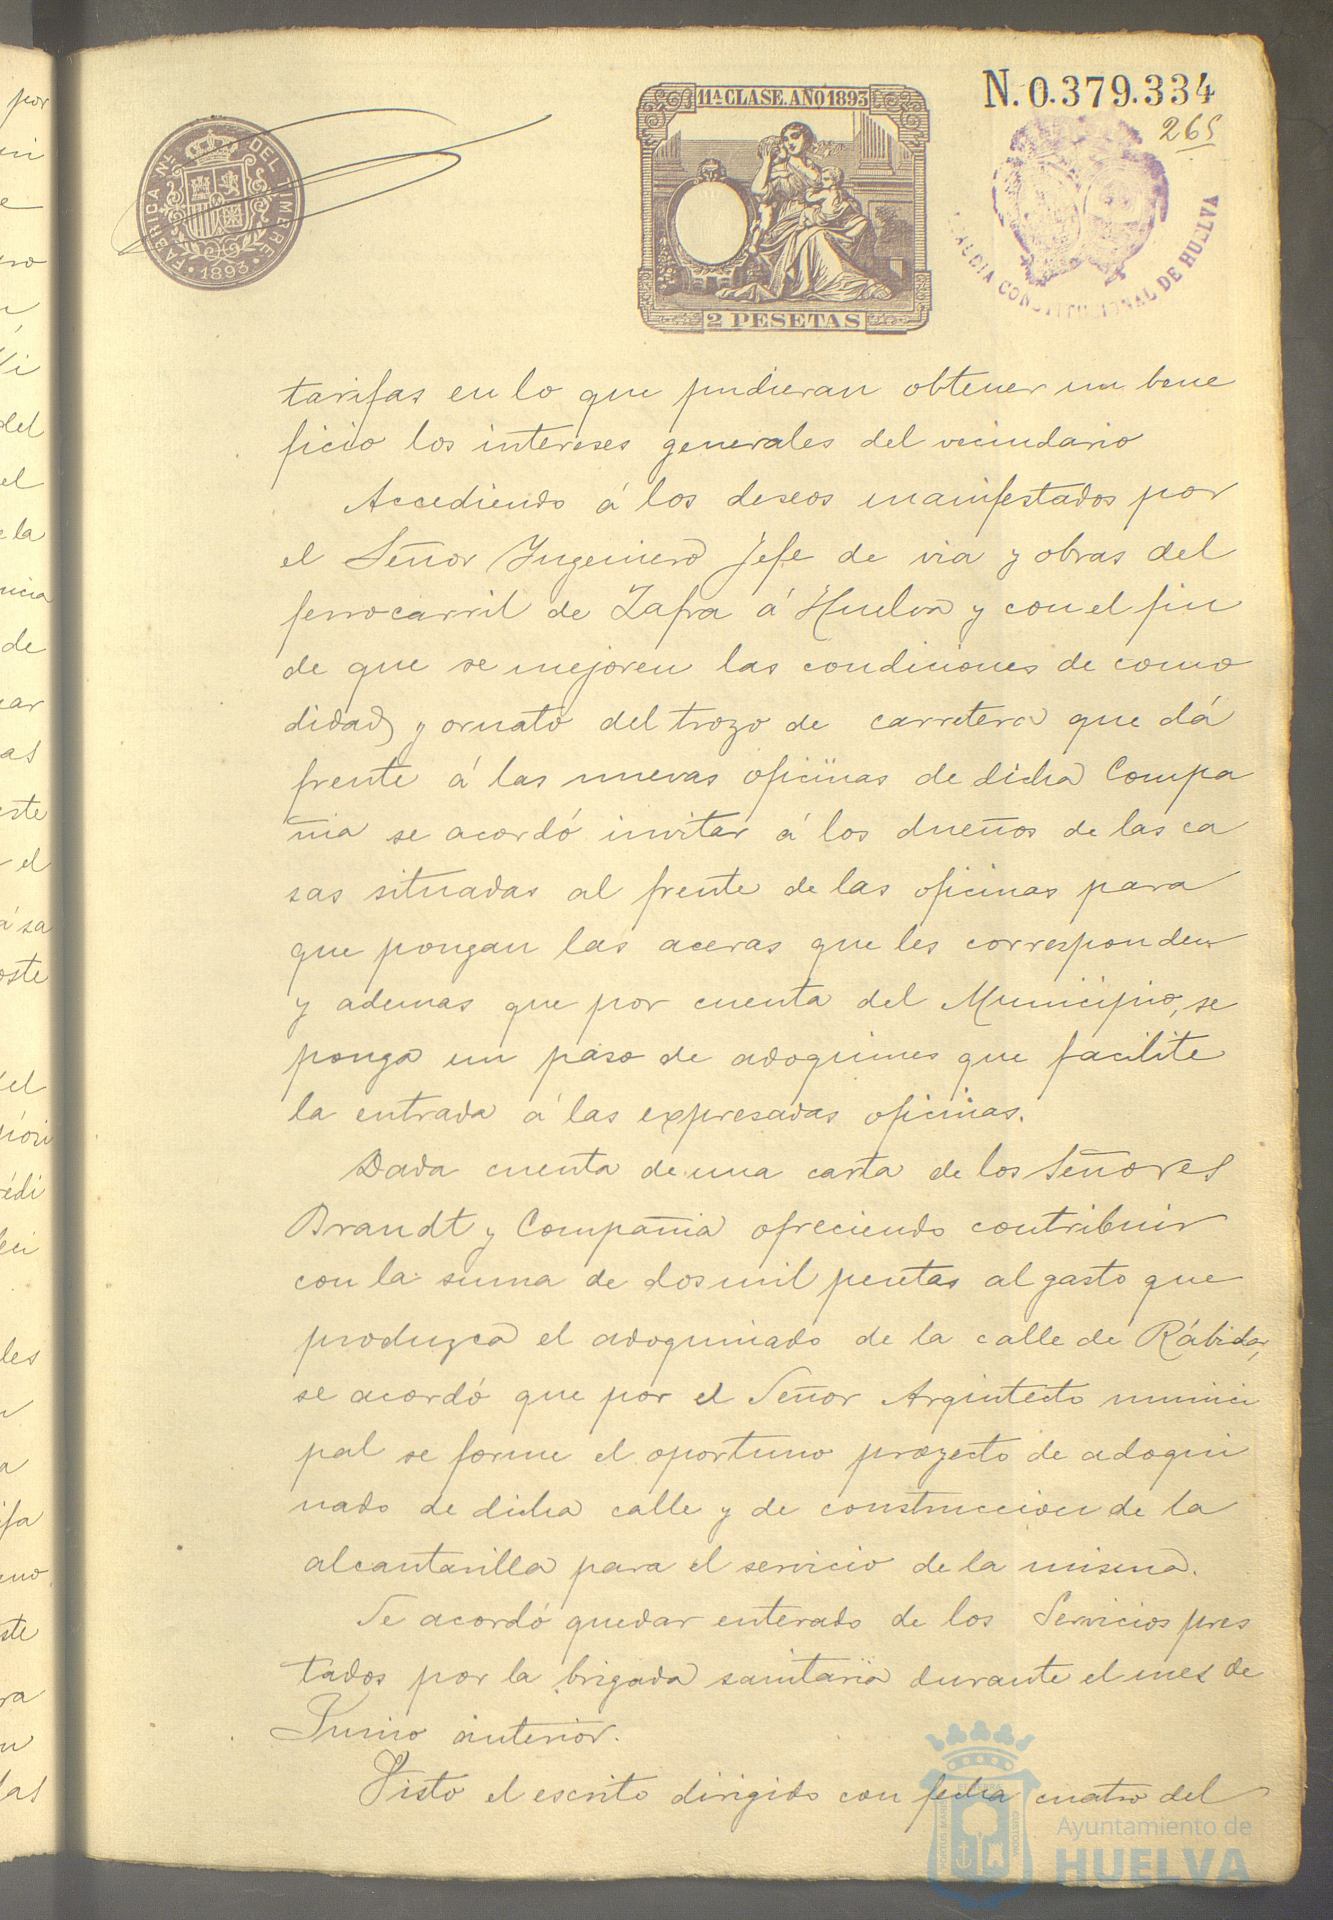 11ª CLASE. AÑO 1893
N. 0.379.334
265
FABRICA Nˡ DEL TIMBRE
· 1893 ·
2 PESETAS
ALCALDIA CONSTITUCIONAL DE HUELVA
tarifas en lo que pudieran obtener un bene
ficio los intereses generales del vecindario
Accediendo á los deseos manifestados por
el Señor Yngeniero Jefe de via y obras del
ferrocarril de Zafra á Huelva y con el fin
de que se mejoren las condiciones de como
didad y ornato del trozo de carretera que dá
frente á las nuevas oficinas de dicha Compa
ñia se acordó invitar á los dueños de las ca
sas situadas al frente de las oficinas para
que pongan las aceras que les corresponden
y ademas que por cuenta del Municipio, se
ponga un paso de adoquines que facilite
la entrada á las expresadas oficinas.
Dada cuenta de una carta de los Señores
Brandt y Compañia ofreciendo contribuir
con la suma de dos mil pesetas al gasto que
produzca el adoquinado de la calle de Rábida,
se acordó que por el Señor Arquitecto munici
pal se forme el oportuno proyecto de adoqui
nado de dicha calle y de construccion de la
alcantarilla para el servicio de la misma.
Se acordó quedar enterado de los Servicios pres
tados por la brigada sanitaria durante el mes de
Junio anterior.
Visto el escrito dirigido con fecha cuatro del
Ayuntamiento de
HUELVA